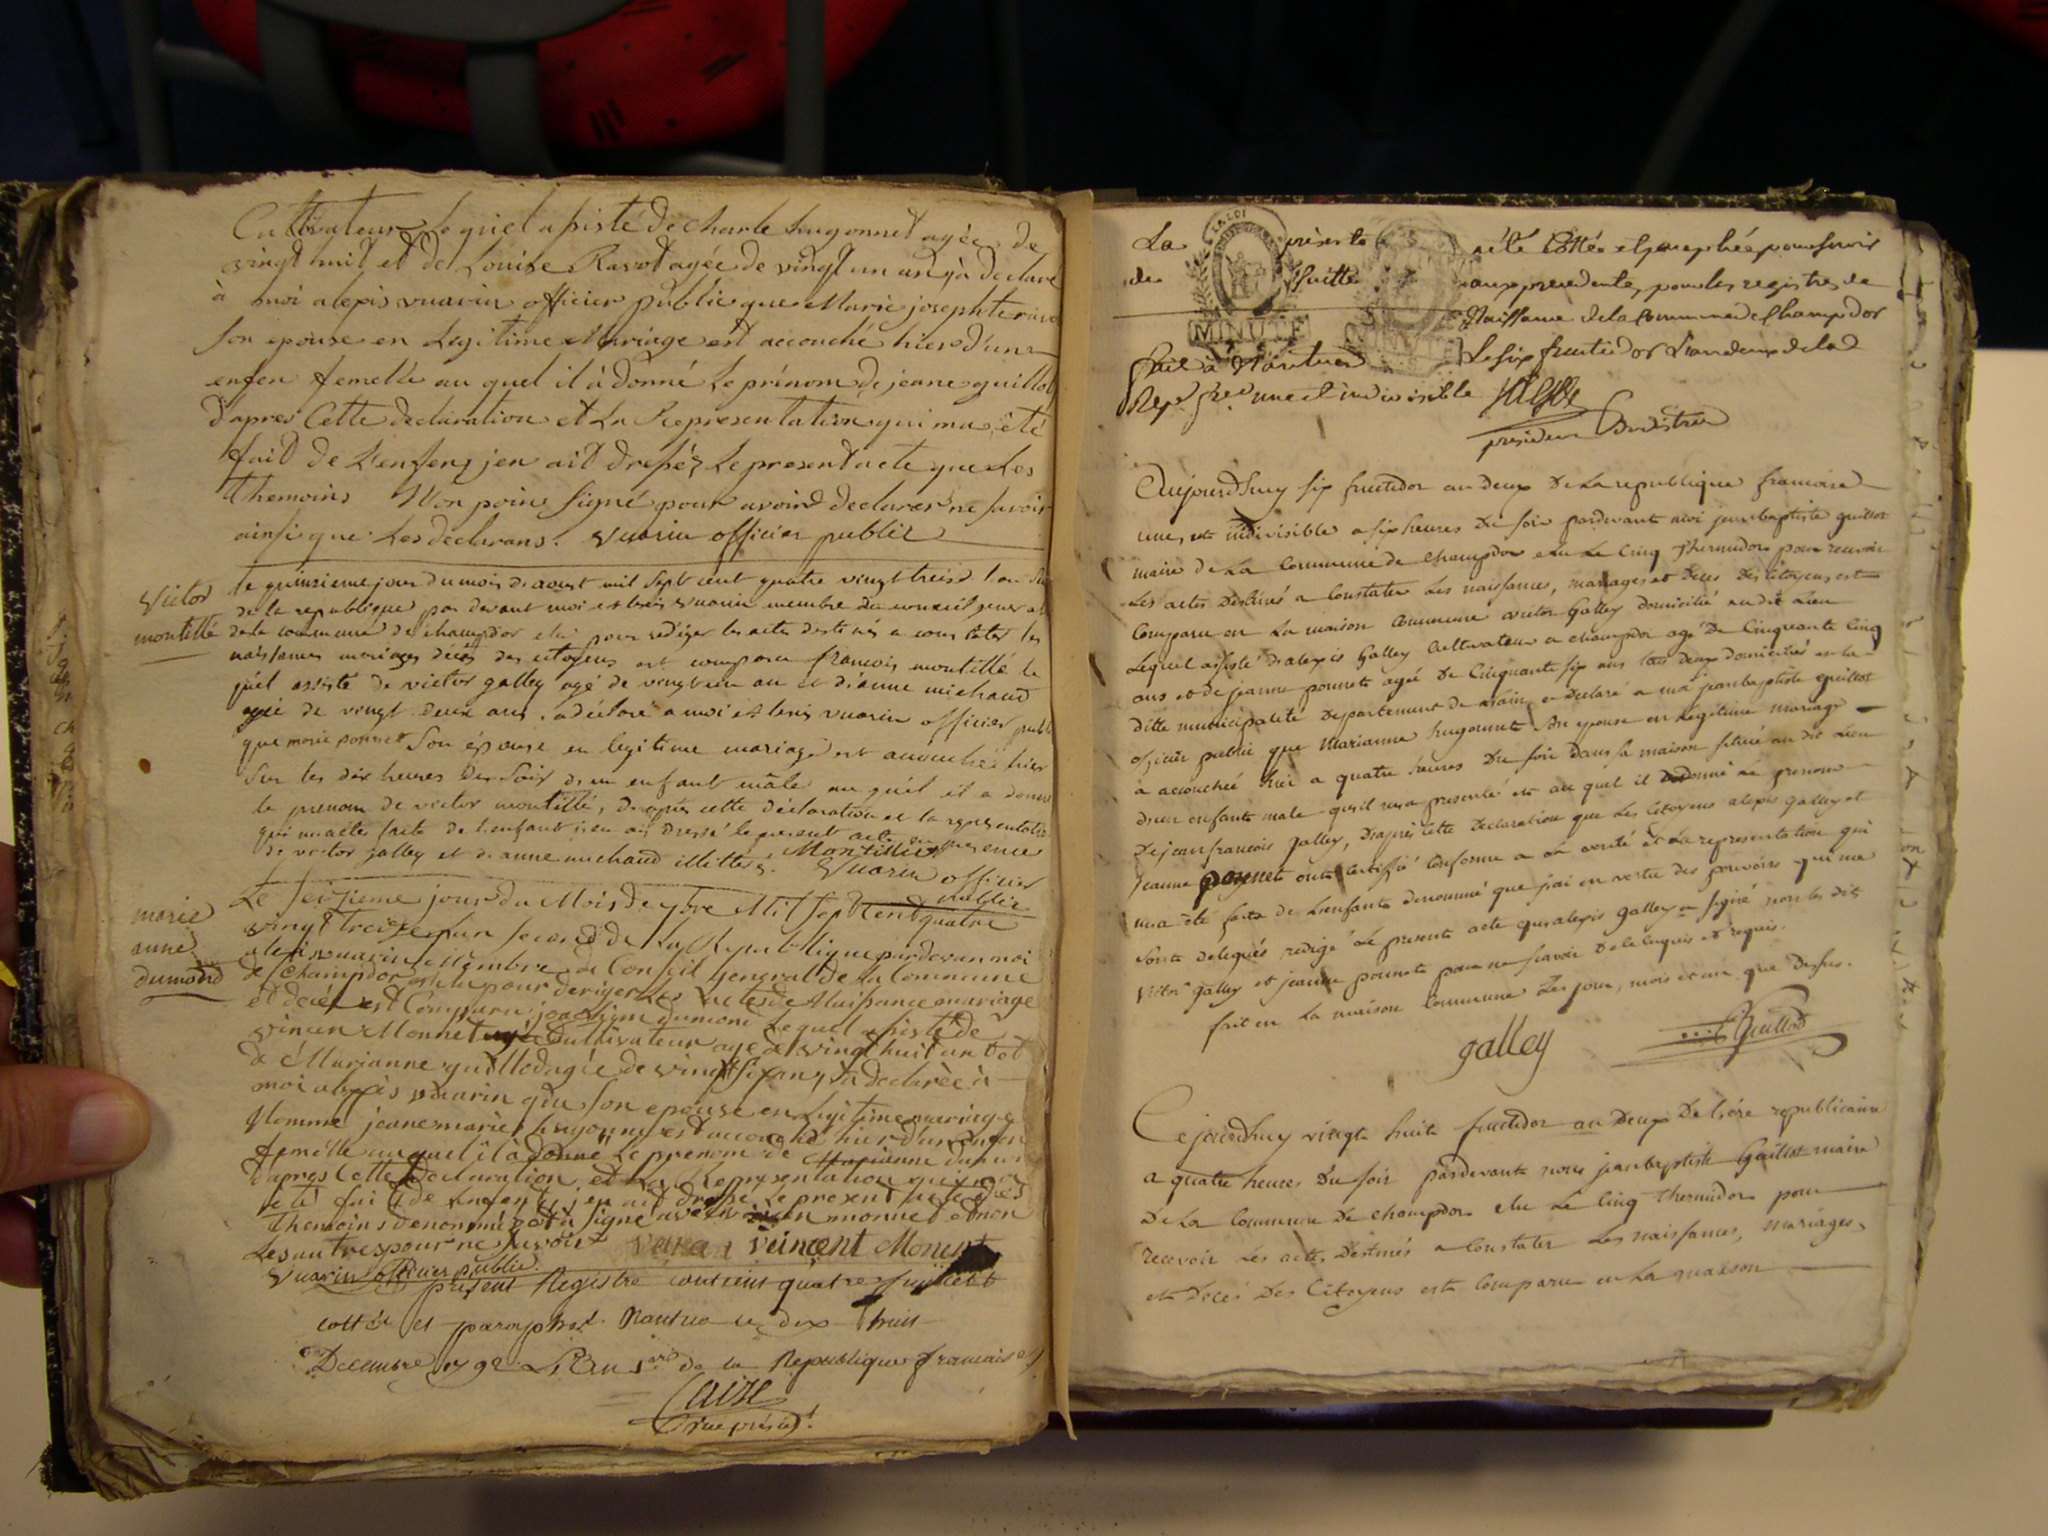 Cultivateur Lequel asisté de charle hugonnet agée de
vingt huit et de Louise Ravot agée de vingt un an à declaré
à moi alexis vuarin officier public que Marie josephte
son epouse en Legitime Mariage est accouché hier d'un
enfen femelle au quel il à donné Le prénom de jeane guillot
d'apres Cette declaration et La Representation qui ma été
fait de L'enfeng jen ait dressé Le present acte que Les
themoins Non poins signé pour avoir declarer ne savoir
ainsi que Les declarans. vuarin officier public
Victor
montillé
le quinzieme jour du mois de aoust mil sept cent quatre vingt treise l'an
de la republique par devant moi alexis vuarin membre du conseil general
de la commune de champdor elu pour rediger les actes destinés a constater les
naissances mariages décès des citoyens est comparu francois montillé le
quel assisté de victor galley agé de vingt un an et d'anne michaud
agée de vingt deux ans. a déclaré a moi alexis vuarin officier publ
que marie ponnet son épouse en legitime mariage est acouché hier
sur les dix heures du soir d'un enfant mâle au quel il a donné
le prenom de victor montillé, d'après cette déclaration et la représentation
qui m'a été faite de l'enfant j'en ai dressé le present acte en presence
de victor galley et d'anne michaud illitteré. Montillet
Vuarin officier
public
marie
anne
dumond
Le seizieme jour du Mois de 7bre Mil sept Cent quatre
vingt treize l'an second de La Republique par devan moi
alexis vuarin Membre du Conseil general de la Commune
de Champdor elu pour deriger Les Actes de Naissance mariage
et décès est Comparu joachim dumond Lequel asisté de
vincen Monnet Cultivateur agé de vingt huit an et
de Marianne guillod agée de vingt six ans à declarée à
moi alexis vuarin que son epouse en Legitime mariage
Nommé jeane marie hugonnet est accouché hier d'un enfen
femelle au quel il à donné Le prenom de Marianne dumon
d'apres Cette Declaration et La Representation qui ma
été fait de Lenfent jen ait dressé Le present acte
themoins denommé ont signé avec vincen monnet et non
Les autres pour ne savoir veincent Monent
Vuarin officier public.
present Registre contient quatre feuillets
cottés et paraphés. Nantua ce dix huit
Decembre 1792 L'an 1er de la Republique francaise
vice présidt.
La présente a été Cottée et paraphée pour servir
de suitte aux precedentes, pour les registres de
MINUTE
Naissance de la Commune de Champdor
fait à Nantua Le six fructidor L'an deux de la
Rep.e fr.se une et indivisible
president du district
Aujourdhuy six fructidor an deux De La republique francaise
une et indivisible a six heures Du soir pardevant moi jean baptiste guillot
maire de La Commune de champdor elu Le Cinq thermidor pour recevoir
Les actes Destinés a Constater Les naissances, mariages et Deces Des Citoyens est
Comparu en La maison Commune victor Galley domicilié au dit Lieu
Lequel assisté D'alexis Galley cultivateur a champdor agé De Cinquante Cinq
ans et de jeanne ponnet agée De Cinquante six ans tous deux domiciliés en la
ditte municipalité Departement de L'ain, a Declaré a moi jean baptiste guillot
officier public que Marianne hugonnet son epouse en Légitime mariage
a accouchée hier a quatre heures Du soir Dans sa maison située au dit Lieu
d'un enfant male qu'il m'a presenté et au quel il a donné Le prenom
De jean francois galley, D'après cette Declaration que Les Citoyens alexis galley et
jeanne ponnet ont certiffié Conforme a La verité et La representation qui
m'a été faite de L'enfant denommé que j'ai en vertu des pouvoirs qui me
sont delegués redigé Le present acte qu'alexis galley a signé non les dits
victor galley et jeanne ponnet pour ne scavoir De ce enquis et requis.
fait en La maison Commune Les jour, mois et an que Dessus.
galley Guillot
Cejourdhuy vingt huit fructidor an Deux De L'ére republicaine
a quatre heures Du soir pardevant nous jean baptiste Guillot maire
De La Commune De champdor elu Le Cinq thermidor pour
recevoir Les actes Destinés a Constater Les naissances, mariages,
et Decés Des Citoyens est Comparu en La maison